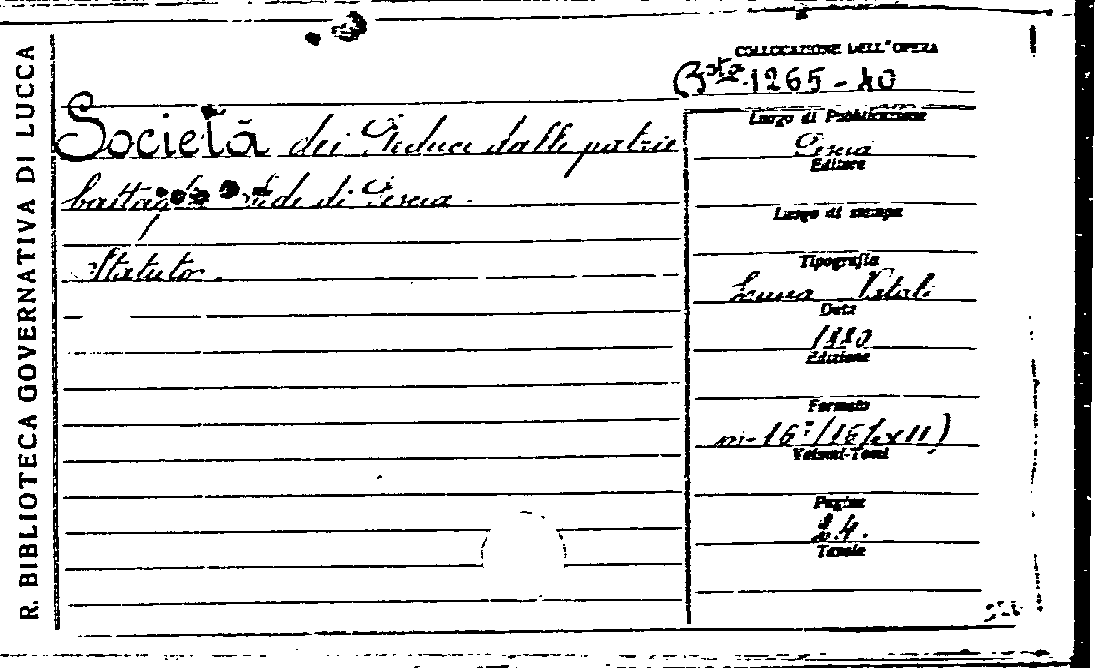 R. BIBLIOTECA GOVERNATIVA DI LUCCA
COLLOCAZIONE DELL'OPERA
Bta 1265-40
Società dei Reduci dalle patrie
battaglie Sede di Pescia.
Statuto.
Luogo di Pubblicazione
Pescia
Editore
Luogo di stampa
Tipografia
Vitali
Data
1880
Edizione
Formato
in-16º (16/2x11)
Volumi-Tomi
Pagine
24.
Tavole